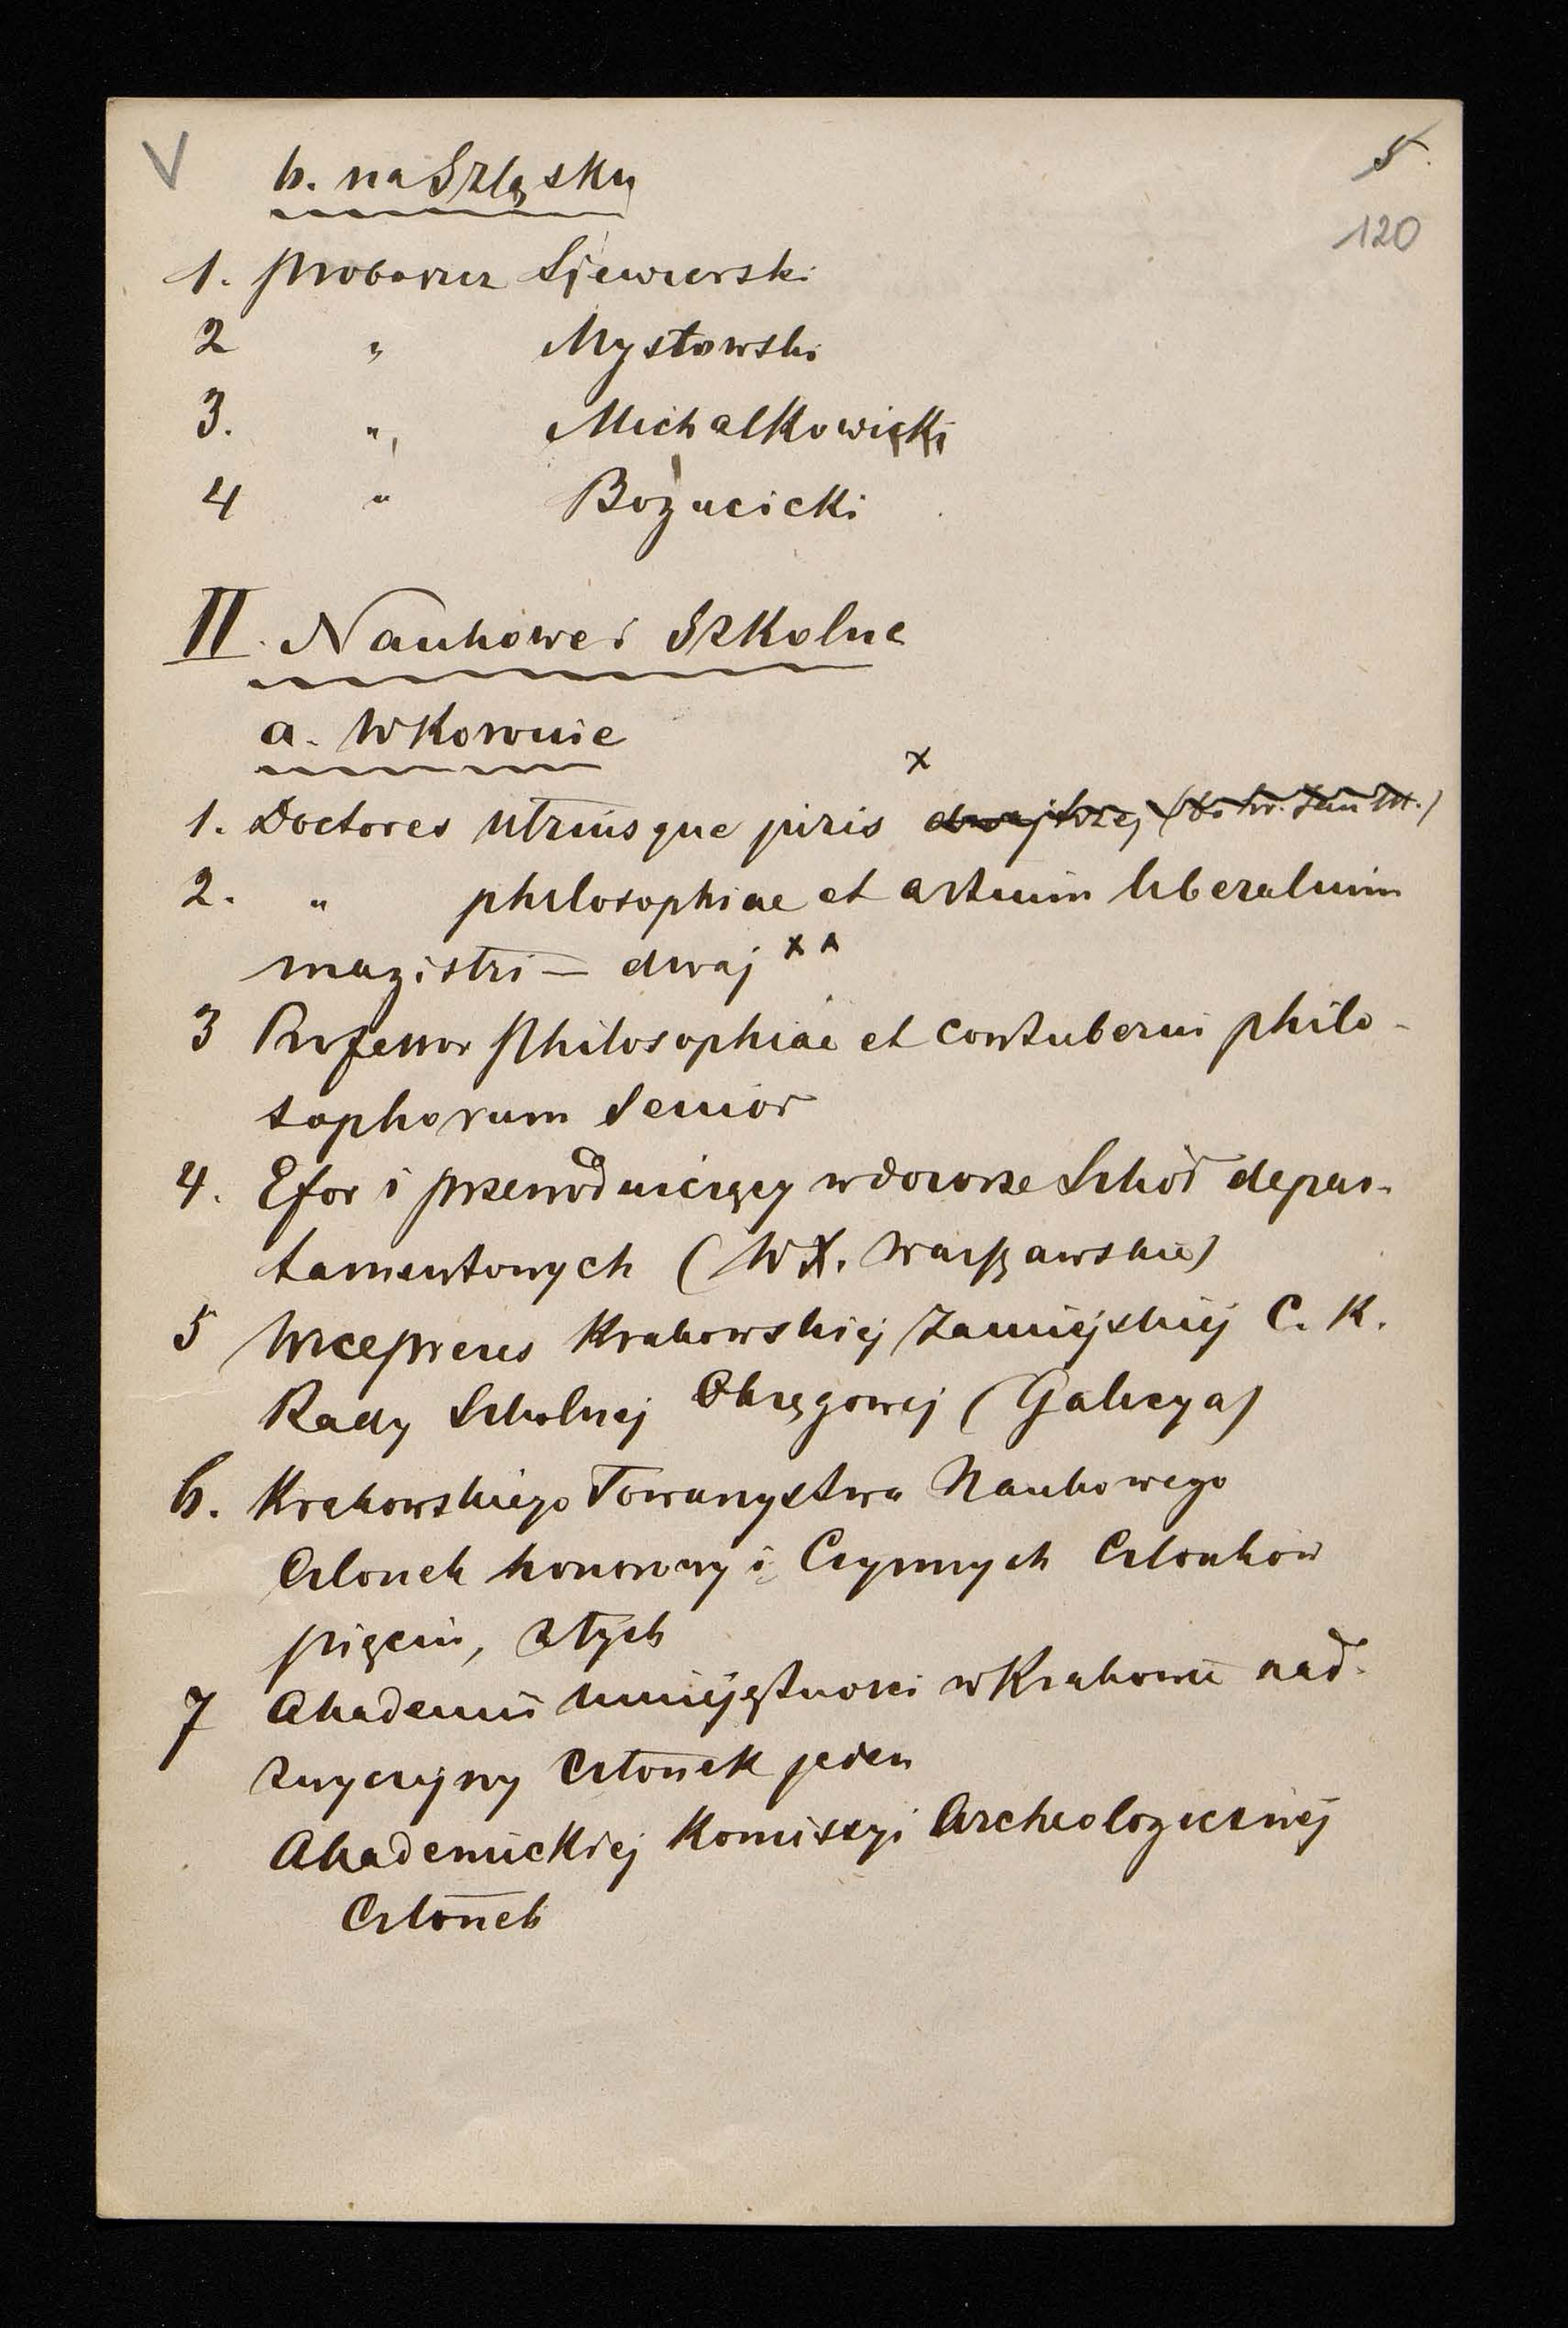 V
5
120
b. na Szląsku
1. proboszcz Siewierski
2 " Mysłowski
3. " Michalkowicki
4 " Bogucicki
II. Naukowe i Szkolne
a. W Koronie
x
1. Doctores utriusque juris dwaj
2. " philosophiae et artium liberalium
magistri – dwaj x x
3 Professor Philosophiae et contuberni philo-
sophorum Senior
4. Efor i przewodniczący w dozorze Szkół depar-
tamentowych (W X. Warszawskie)
5 Wiceprezes Krakowskiej Zamiejskiej C. K.
Rady Szkolnej Okręgowej (Galicya)
6. Krakowskiego Towarzystwa Naukowego
Członek honorowy i Czynnych Członków
pięciu, z tych
7 Akademii Umiejętności w Krakowie nad-
zwyczajny Członek jeden
Akademickiej Komissyi Archeologicznej
Członek